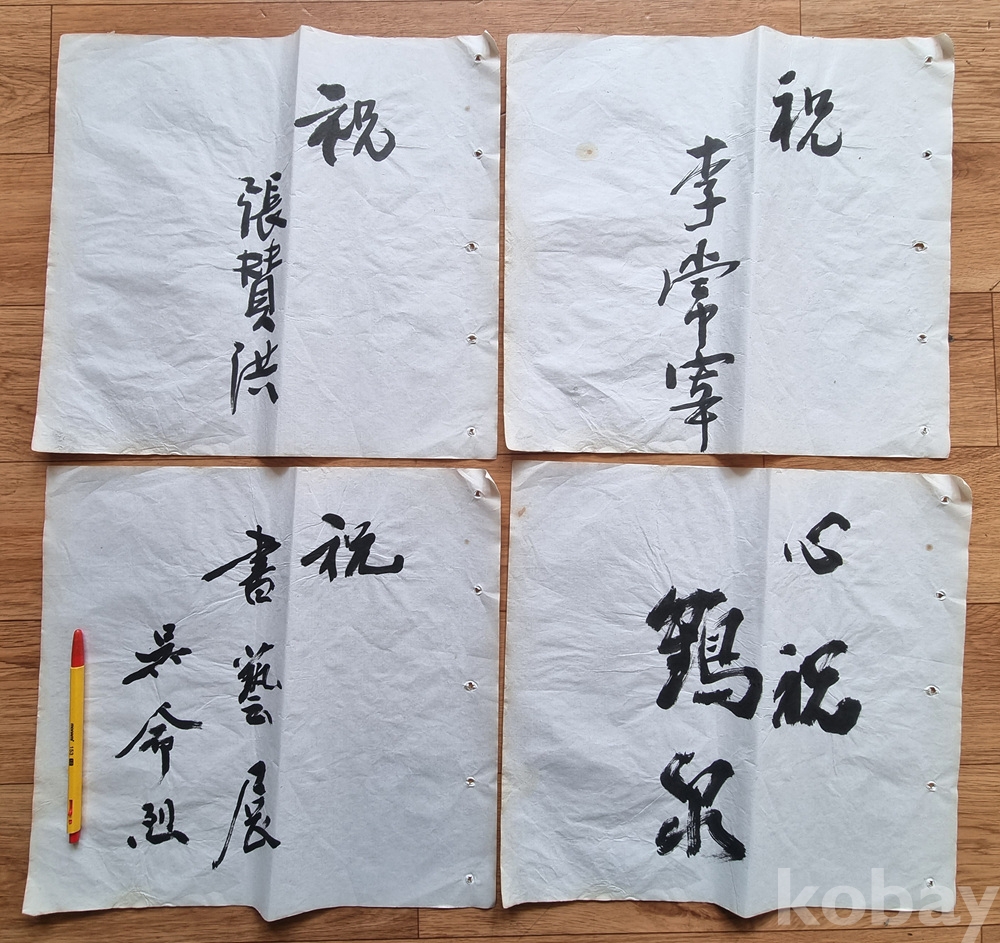 祝
張贊洪
祝
李常宰
祝
書藝展
吳命烈
心祝
鶴泉
153
kobay